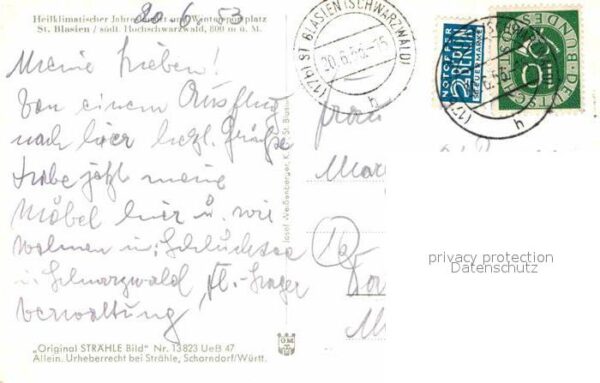 Heilklimatischer Jahreskurort und Wintersportplatz
St. Blasien / südl. Hochschwarzwald, 800 m ü. M.
20. 6. 53
Meine Lieben!
Von einem Ausflug
nach hier herzl. Grüße
Habe jetzt meine
Möbel hier u. wir
wohnen in Schluchsee
i. Schwarzwald,
Verwaltung!
„Original STRÄHLE Bild" Nr. 13823 UeB 47
Allein. Urheberrecht bei Strähle, Schorndorf/Württ.
Josef Weißenberger, K St. Blasien
(17b) ST. BLASIEN (SCHWARZWALD)
20.6.53-15
h
NOTOPFER
2 BERLIN
STEUERMARKE
DEUTSCHE BUNDESPOST
10
Frau
privacy protection
Datenschutz